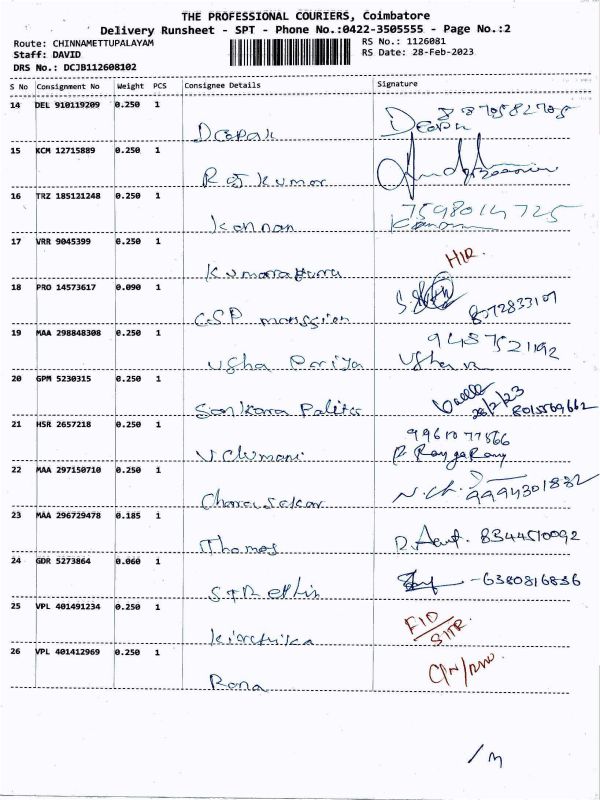 THE PROFESSIONAL COURIERS, Coimbatore
Delivery Runsheet - SPT - Phone No.:0422-3505555 - Page No.:2
Route: CHINNAMETTUPALAYAM RS No.: 1126081
Staff: DAVID RS Date: 28-Feb-2023
DRS No.: DCJB112608102
S No Consignment No Weight PCS Consignee Details Signature
14 DEL 910119209 0.250 1
Deepak Deepak
15 KCM 12715889 0.250 1
Raj Kumar
16 TRZ 185121248 0.250 1 7598014725
Kannan Kannan
17 VRR 9045399 0.250 1
18 PRO 14573617 0.090 1
GSP 8072833107
19 MAA 298848308 0.250 1 9487521192
Usha Usha
20 GPM 5230315 0.250 1
Sankara 28/2/23 8015569662
21 HSR 2657218 0.250 1 9961077566
22 MAA 297150710 0.250 1
N. Ch. 9994301832
23 MAA 296729478 0.185 1
Thomas 8344510092
24 GDR 5273864 0.060 1
-6380816836
25 VPL 401491234 0.250 1
26 VPL 401412969 0.250 1
Rana